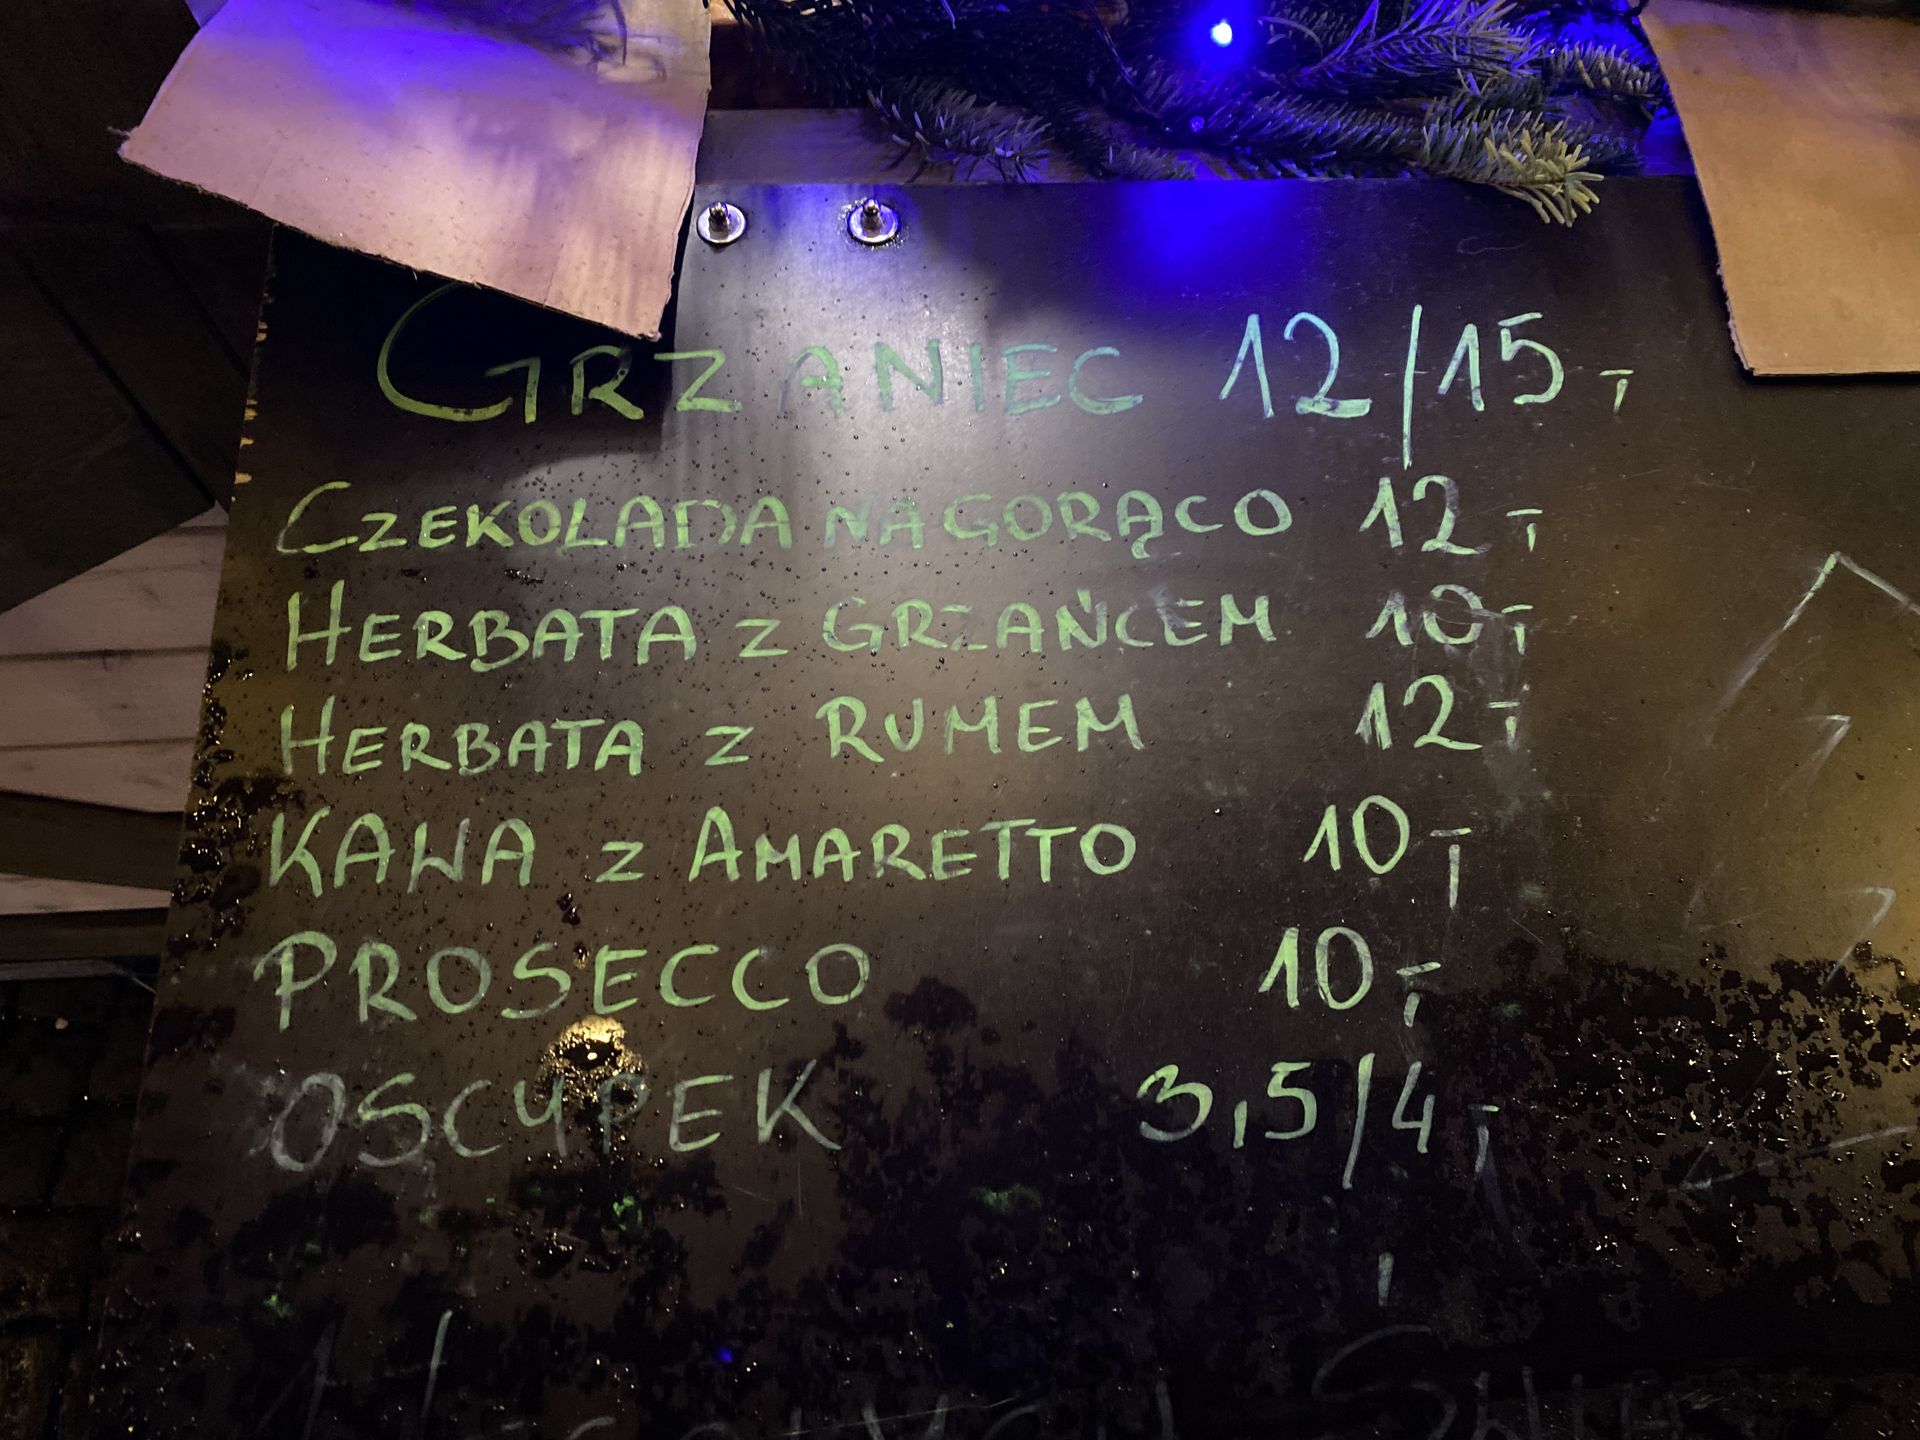 GRZANIEC 12/15,-
CZEKOLADA NA GORĄCO 12,-
HERBATA Z GRZAŃCEM 10,-
HERBATA Z RUMEM 12,-
KAWA Z AMARETTO 10,-
PROSECCO 10,-
OSCYPEK 3,5/4,-